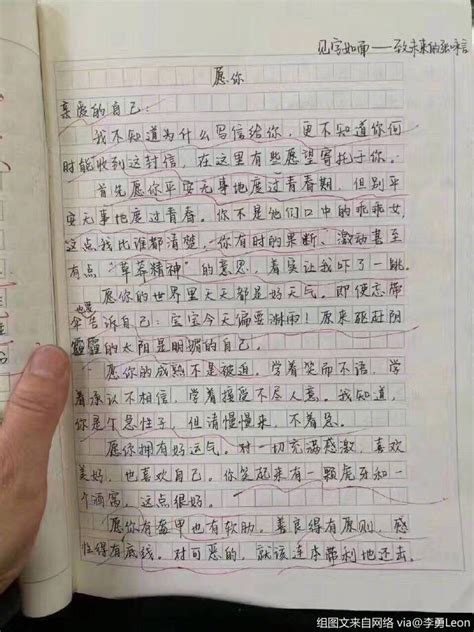 见字如面——致未来的张咏言
愿你
亲爱的自己：
我不知道为什么写信给你，更不知道你何
时能收到这封信，在这里有些愿望寄托于你。
首先愿你平安无事地度过青春期，但别平
安无事地度过青春。你不是他们口中的乖乖女，
这点我比谁都清楚，你有时的果断、激动甚至
有点“草莽精神”的意思，着实让我吓了一跳。
愿你的世界里天天都是好天气。即便忘带
伞也要告诉自己：宝宝今天偏要淋雨！原来驱赶阴
霾的太阳是明媚的自己。
愿你的成熟不是被迫。学着笑而不语，学
着承认不相信，学着接受不尽人意。我知道，
你是个急性子，但请慢慢来，不着急。
愿你拥有好运气。对一切充满感激，喜欢
美好，也喜欢自己。你笑起来有一颗虎牙和一
个酒窝，这点很好。
愿你有盔甲也有软肋。善良得有原则，感
性得有底线。对可恶的，就该连本带利地还去。
组图文来自网络 via@李勇Leon